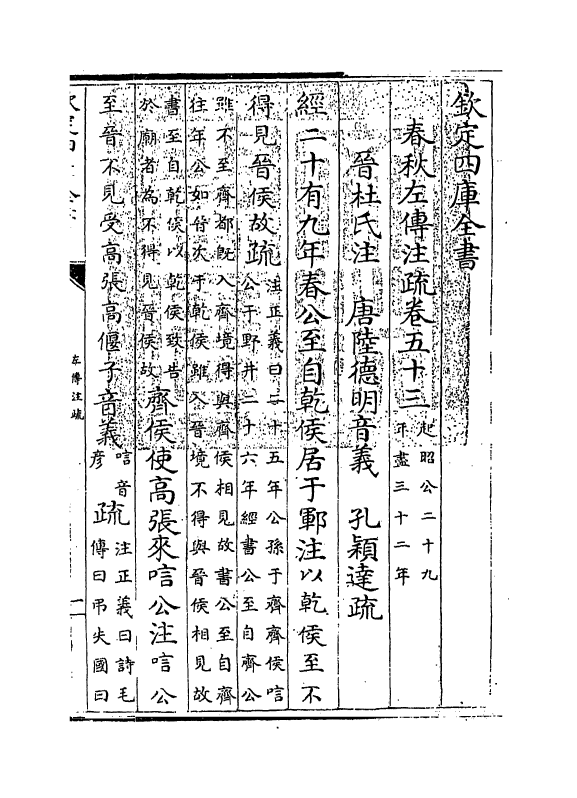 欽定四庫全書
春秋左傳注疏卷五十三
起昭公二十九
年盡三十二年
晉杜氏注　唐陸德明音義　孔穎達疏
經二十有九年春公至自乾侯居于鄆注以乾侯至不
得見晉侯故疏
注正義曰二十五年公孫于齊齊侯唁
公于野井二十六年經書公至自齊公
雖不至齊都既入齊境得與齊侯相見故書公至自齊
往年公如晉次于乾侯雖入晉境不得與晉侯相見故
書至自乾侯以乾侯致告
於廟者為不得見晉侯故
齊侯使高張來唁公注唁公
至晉不見受高張高偃子音義
唁音
彥
疏
注正義曰詩毛
傳曰弔失國曰
左傳注疏
一